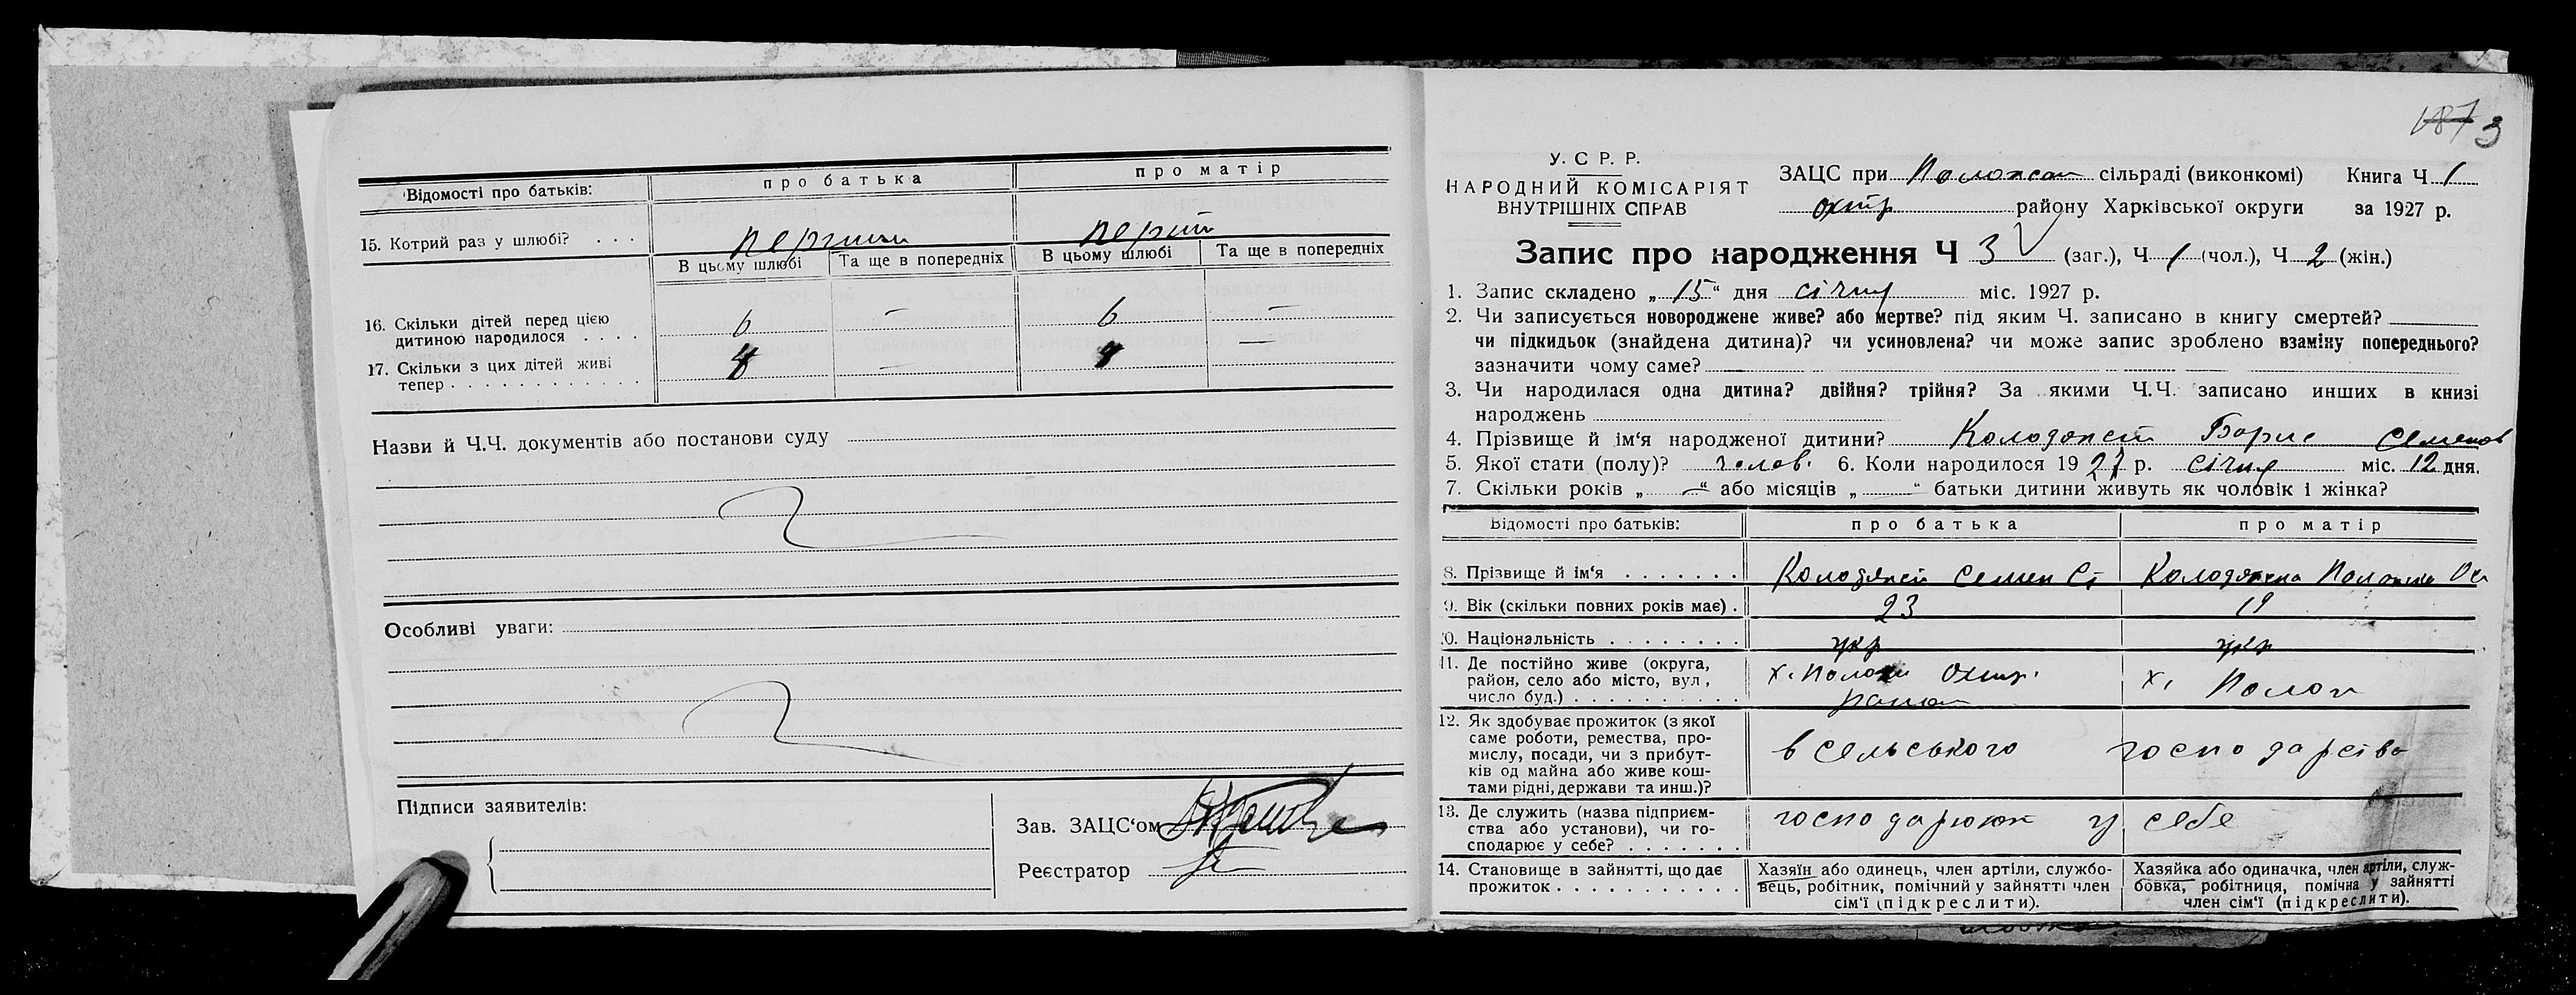 Відомості про батьків: про батька про матір
15. Котрий раз у шлюбі? . . . перший перший
В цьому шлюбі Та ще в попередніх В цьому шлюбі Та ще в попередніх
16. Скільки дітей перед цією
дитиною народилося . . . . 6 — 6 —
17. Скільки з цих дітей живі
тепер . . . . . . . . . . . . . — —
Назви й Ч.Ч. документів або постанови суду
Особливі уваги:
Підписи заявителів:
Зав. ЗАЦС‘ом
Реєстратор
187 3
У. С Р. Р.
НАРОДНИЙ КОМІСАРІЯТ
ВНУТРІШНІХ СПРАВ
ЗАЦС при сільраді (виконкомі) Книга Ч 1
Охтр району Харківської округи за 1927 р.
Запис про народження Ч 3 (заг.), Ч 1 (чол.), Ч 2 (жін.)
1. Запис складено „ 15 “ дня січня міс. 1927 р.
2. Чи записується новороджене живе? або мертве? під яким Ч. записано в книгу смертей?
чи підкидьок (знайдена дитина)? чи усиновлена? чи може запис зроблено взаміну попереднього?
зазначити чому саме?
3. Чи народилася одна дитина? двійня? трійня? За якими Ч.Ч. записано инших в книзі
народжень
4. Прізвище й ім‘я народженої дитини? Борис Семенов
5. Якої стати (полу)? челов. 6. Коли народилося 19 27 р. січня міс. 12 дня.
7. Скільки років „ — “ або місяців „ “ батьки дитини живуть як чоловік і жінка?
Відомості про батьків: про батька про матір
8. Прізвище й ім‘я . . . . . . . Семен Ст
9. Вік (скільки повних років має) . 23 19
10. Національність . . . . . . . . укр укр
11. Де постійно живе (округа,
район, село або місто, вул,
число буд.) . . . . . . . . . . х. Охтр. х.
район
12. Як здобуває прожиток (з якої
саме роботи, ремества, про-
мислу, посади, чи з прибут-
ків од майна або живе кош-
тами рідні, держави та инш.)?
в сельського господарства
13. Де служить (назва підприєм-
ства або установи), чи го-
сподарює у себе? . . . . . . . господарюют у себе
14. Становище в зайнятті, що дає
прожиток . . . . . . . . . . . .
Хазяїн або одинець, член артіли, службо-
вець, робітник, помічний у зайнятті член
сім‘ї (підкреслити).
Хазяйка або одиначка, член артіли, служ-
бовка, робітниця, помічна у зайнятті
член сім‘ї (підкреслити).